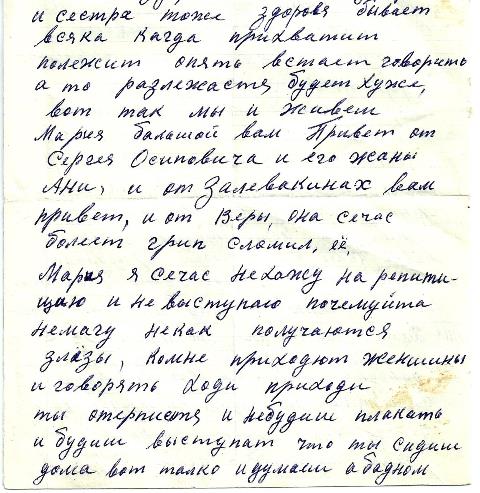 и сестра тоже здоровя бывает
всяка кагда прихватит
полежит опять встает говорить
а то разлежастя будет хуже,
вот так мы и живем
Мария большой вам Привет от
Сергея Осиповича и его жаны
Ани, и от Залевакинах вам
привет, и от Веры, она сечас
болеет грип сломил, её,
Мария я сечас нехожу на репити-
цию и не выступаю почемуйта
немагу некак получаются
злёзы, комне приходют женшины
и говорять ходи приходи
ты отерпистя и небудиш плакать
и будиш выступат что ты сидиш
дома вот толко и думаеш абадном